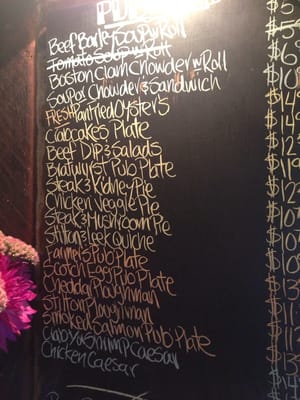 PUB
Beef Barley Soup w Roll $5
Tomato Soup w Roll $5
Boston Clam Chowder w Roll $6
Soup or Chowder & Sandwich $10
FRESH Pan Fried Oyster's $14
Crabcakes Plate $14
Beef Dip & Salads $12
Bratwurst Pub Plate $12
Steak & Kidney Pie $12
Chicken Veggie Pie $10
Steak & Mushroom Pie $12
Stilton Leek Quiche $10
Farmer's Pub Plate
Scotch Egg Pub Plate
Cheddar Ploughman
Stilton Ploughman
Smoked Salmon Pub Plate
Crab or Shrimp Caesar
Chicken Caesar